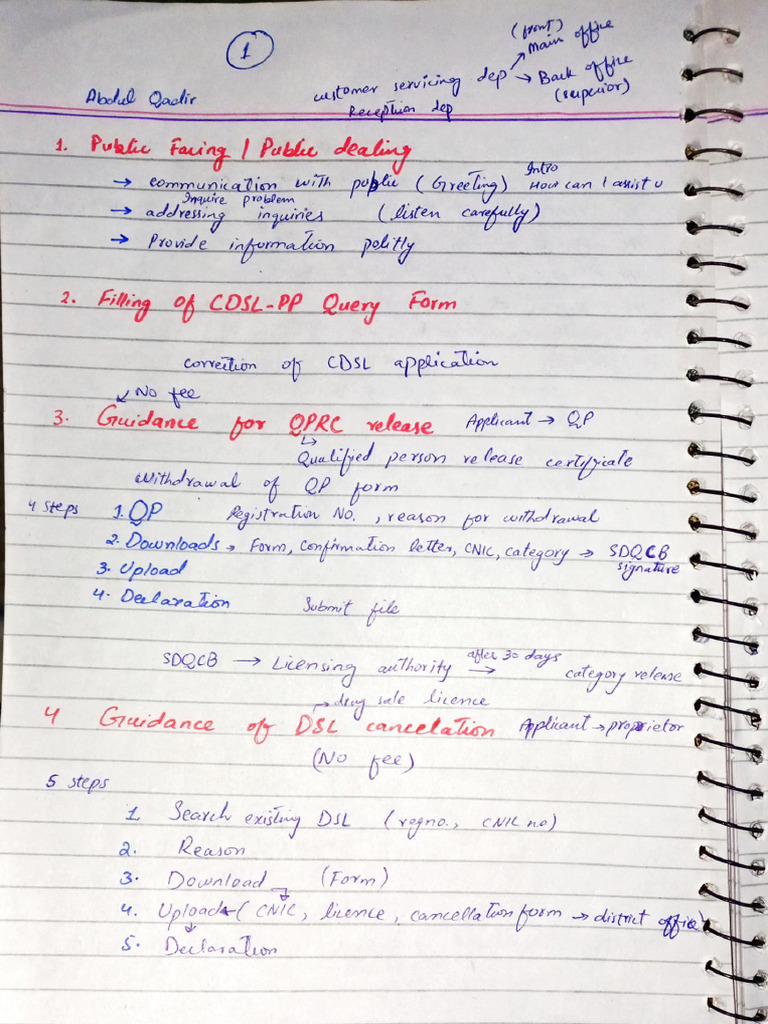 1
(front)
Main office
Abdul Qadir customer servicing dep → Back office
(superior)
Reception dep
1. Public Facing / Public dealing
→ communication with public (Greeting) Intro How can I assist u
Inquire problem
→ addressing inquiries (listen carefully)
→ Provide information politly
2. Filling of CDSL-PP Query Form
correction of CDSL application
No fee
3. Guidance for QPRC release Applicant → QP
Qualified person release certificate
Withdrawal of QP form
4 steps 1. QP Registration No., reason for withdrawal
2. Downloads → Form, confirmation letter, CNIC, category → SDQCB
signature
3. Upload
4. Declaration Submit file
SDQCB → Licensing authority after 30 days → category release
→ drug sale licence
4 Guidance of DSL cancelation Applicant → proprietor
(No fee)
5 steps
1. Search existing DSL (regno., CNIC no)
2. Reason
3. Download (Form)
4. Upload (CNIC, licence, cancellation form → district office)
5. Declaration